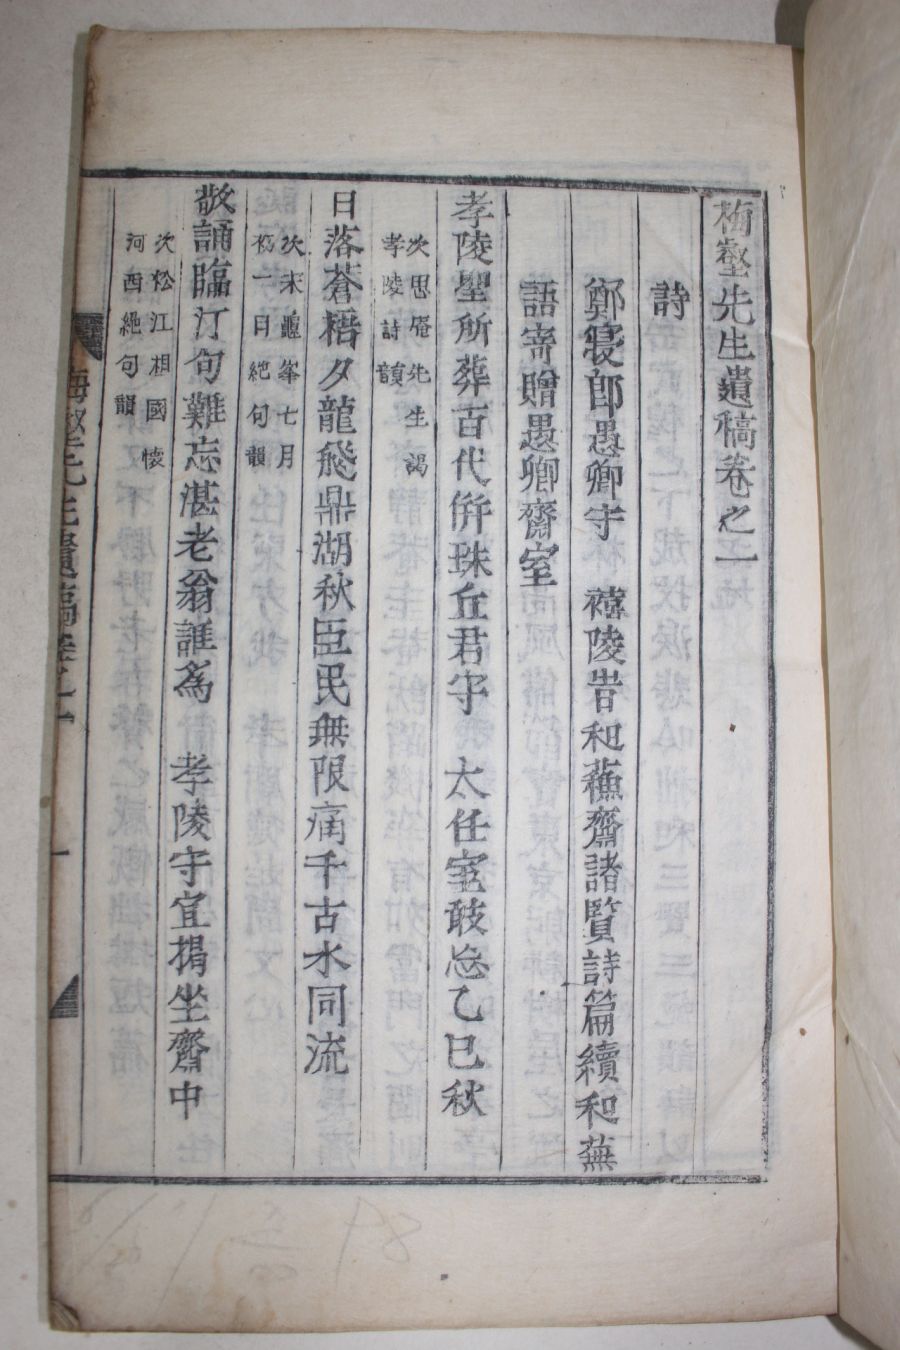 梅壑先生遺稿卷之一
詩
鄭寢郎愚卿守 禧陵昔和蘓齋諸賢詩篇續和蕪
語寄贈愚卿齋室
孝陵聖所葬百代倂珠丘君守 太任室敢忘乙巳秋
次思庵先生謁
孝陵詩韻
日落蒼梧夕龍飛鼎湖秋臣民無限痛千古水同流
次宋龜峯七月
初一日絶句韻
敬誦臨汀句難忘湛老翁誰爲 孝陵守宜揭坐齋中
次松江相國懷
河西絶句韻
梅壑先生遺稿卷之一
一